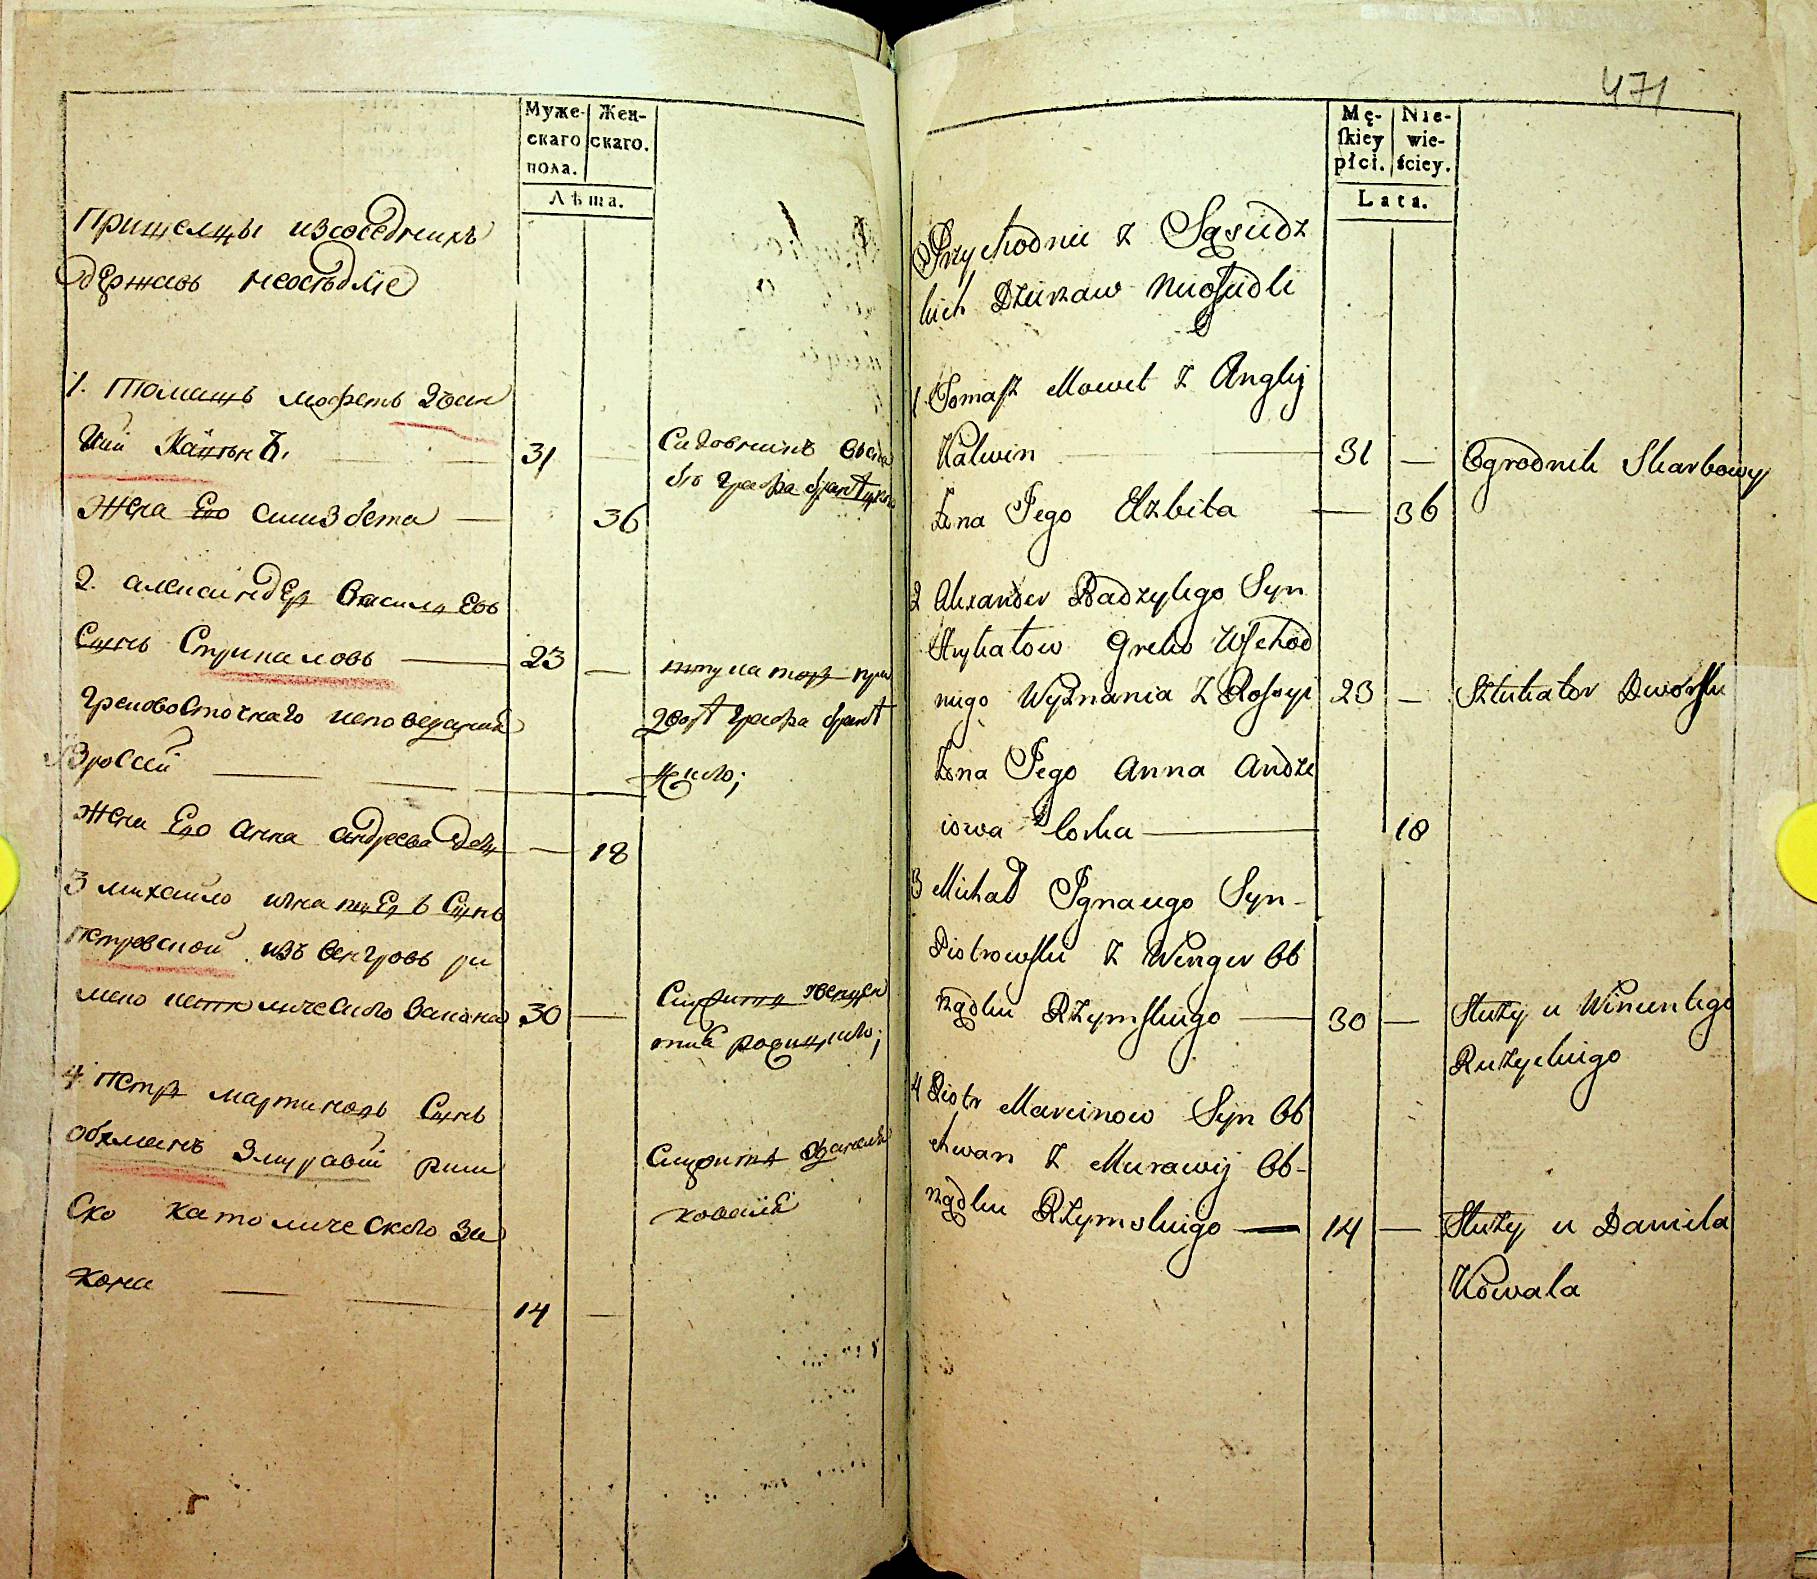 Муже-
скаго
пола.
Жен-
скаго.
Лѣта.
Пришелцы изсоседнихъ
державъ неоседлие
1. Томашъ Мофетъ
31
Садовникъ
графа
Жена Его Елизбета
36
2. Александер Василиевъ
Сынъ Стрикаловъ
23
грековосточнаго исповедания
графа
Зросии
Жена Его Анна Андреева
18
3 Михайло Игнациевъ Сынъ
Петровской изъ Венгровъ ри
мско католическаго закона
30
Служитъ
4 Петръ Мартиновъ Сынъ
Обхманъ Змуравии рим
ско католическаго за
кона
14
Служитъ
коваля
471
Mę-
ſkiey
płci.
Nie-
wie-
ściey.
Lata.
Przychodnie z Sąsiedz
kich Dzierzaw Nieosiedli
1 Tomasz Mowet z Anglij
Kalwin
31
Ogrodnik Skarbowy
Zona Jego Elzbieta
36
2 Alexander Badzylego Syn
Strykałow Greko Wschod
niego Wyznania z Rossyi
23
Sztukator Dworski
Zona Jego Anna Andze
iowa Corka
18
3 Michał Ignacego Syn
Piotrowski z Wengier Ob
rządku Rzymskiego
30
Służy u Wincentego
Ruzyckiego
4 Piotr Marcinow Syn Ob
chman z Murawij Ob-
rządku Rzymskiego
14
Służy u Daniela
Kowala